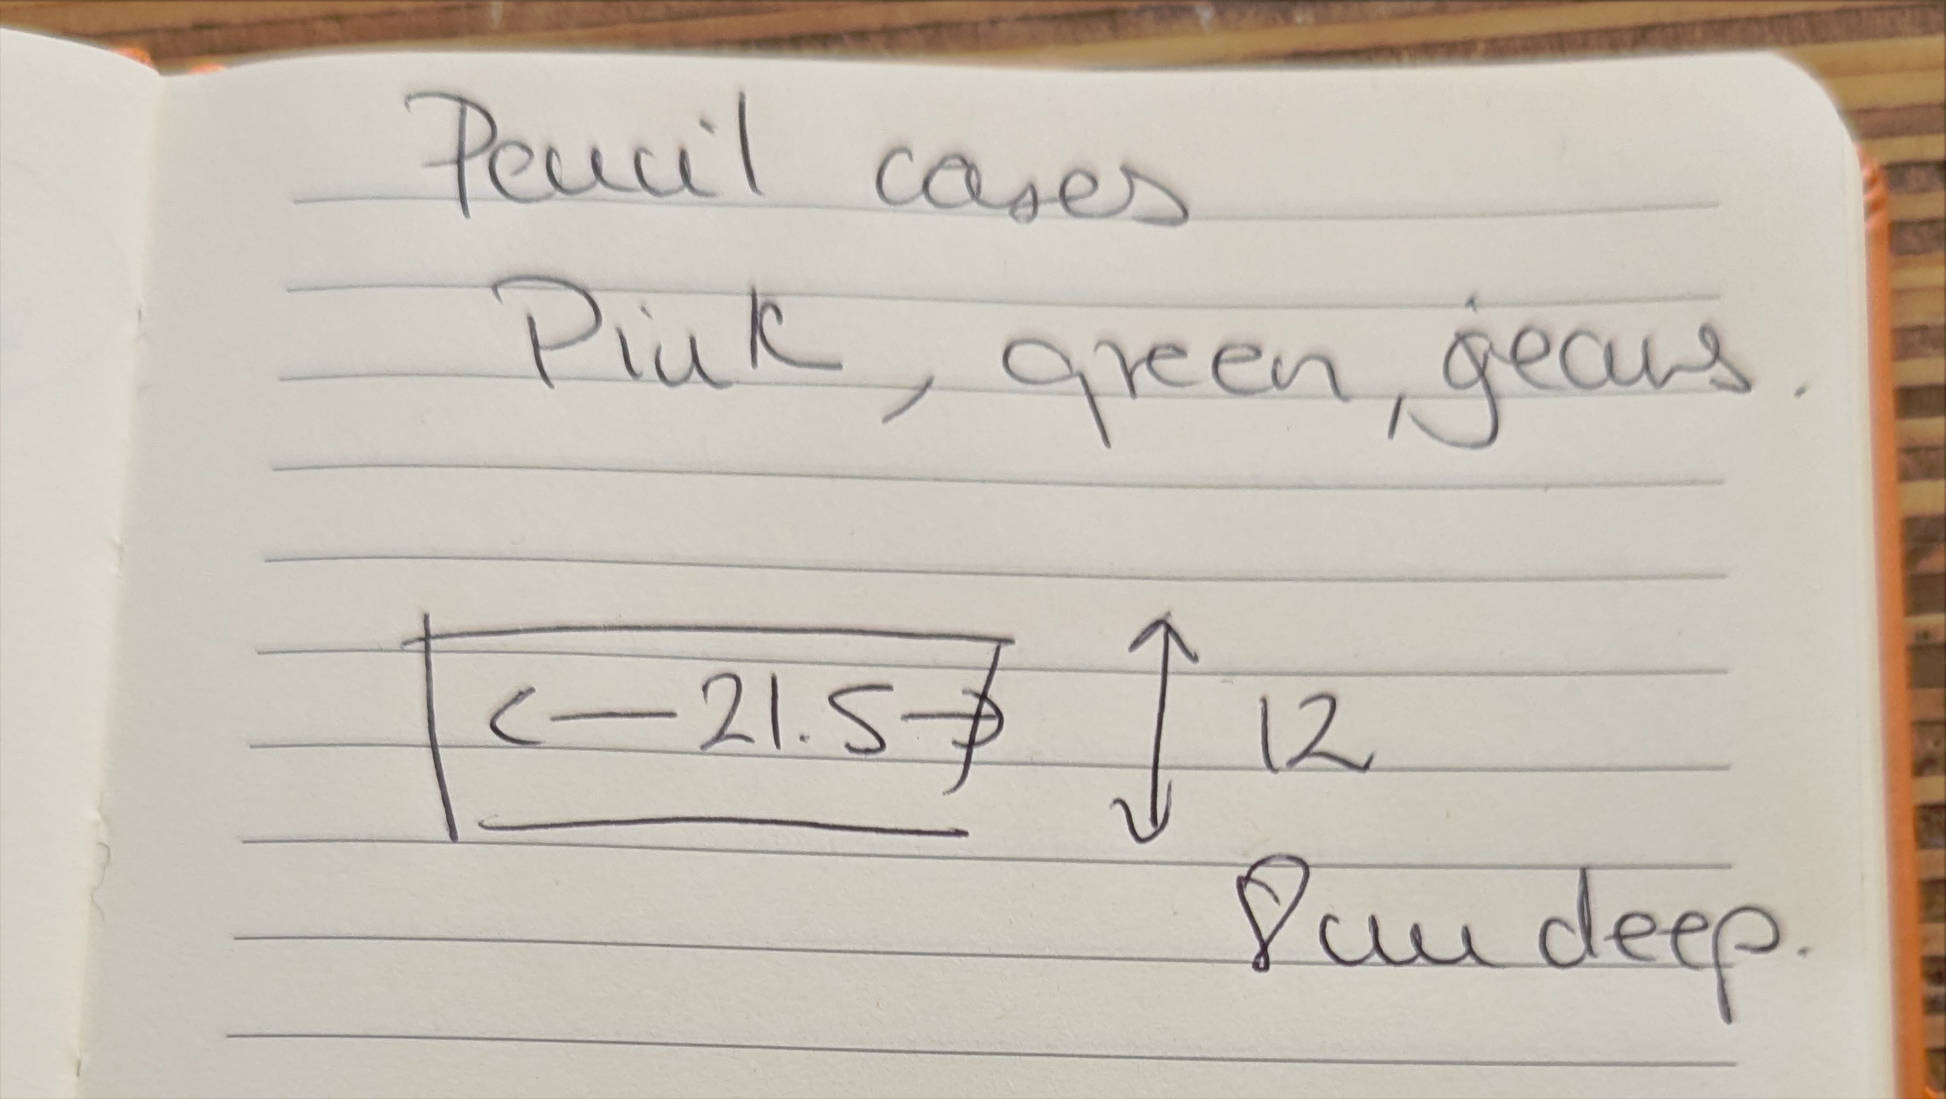 Pencil cases
Pink, green, gears.
21.5
12
8cm deep.